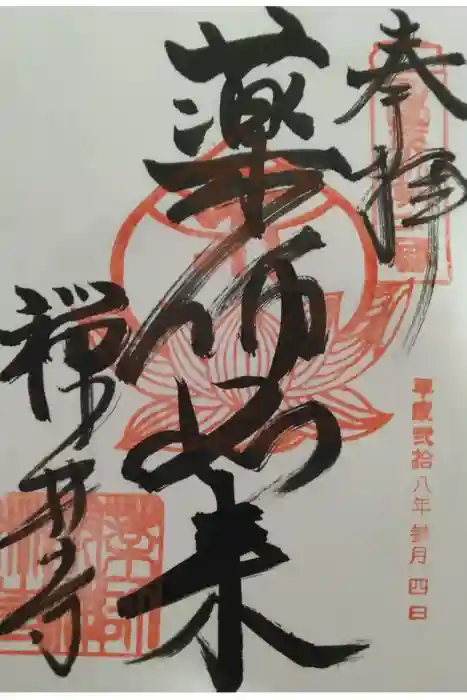 奉拝
平成弐拾八年参月四日
薬師如来
禅井寺